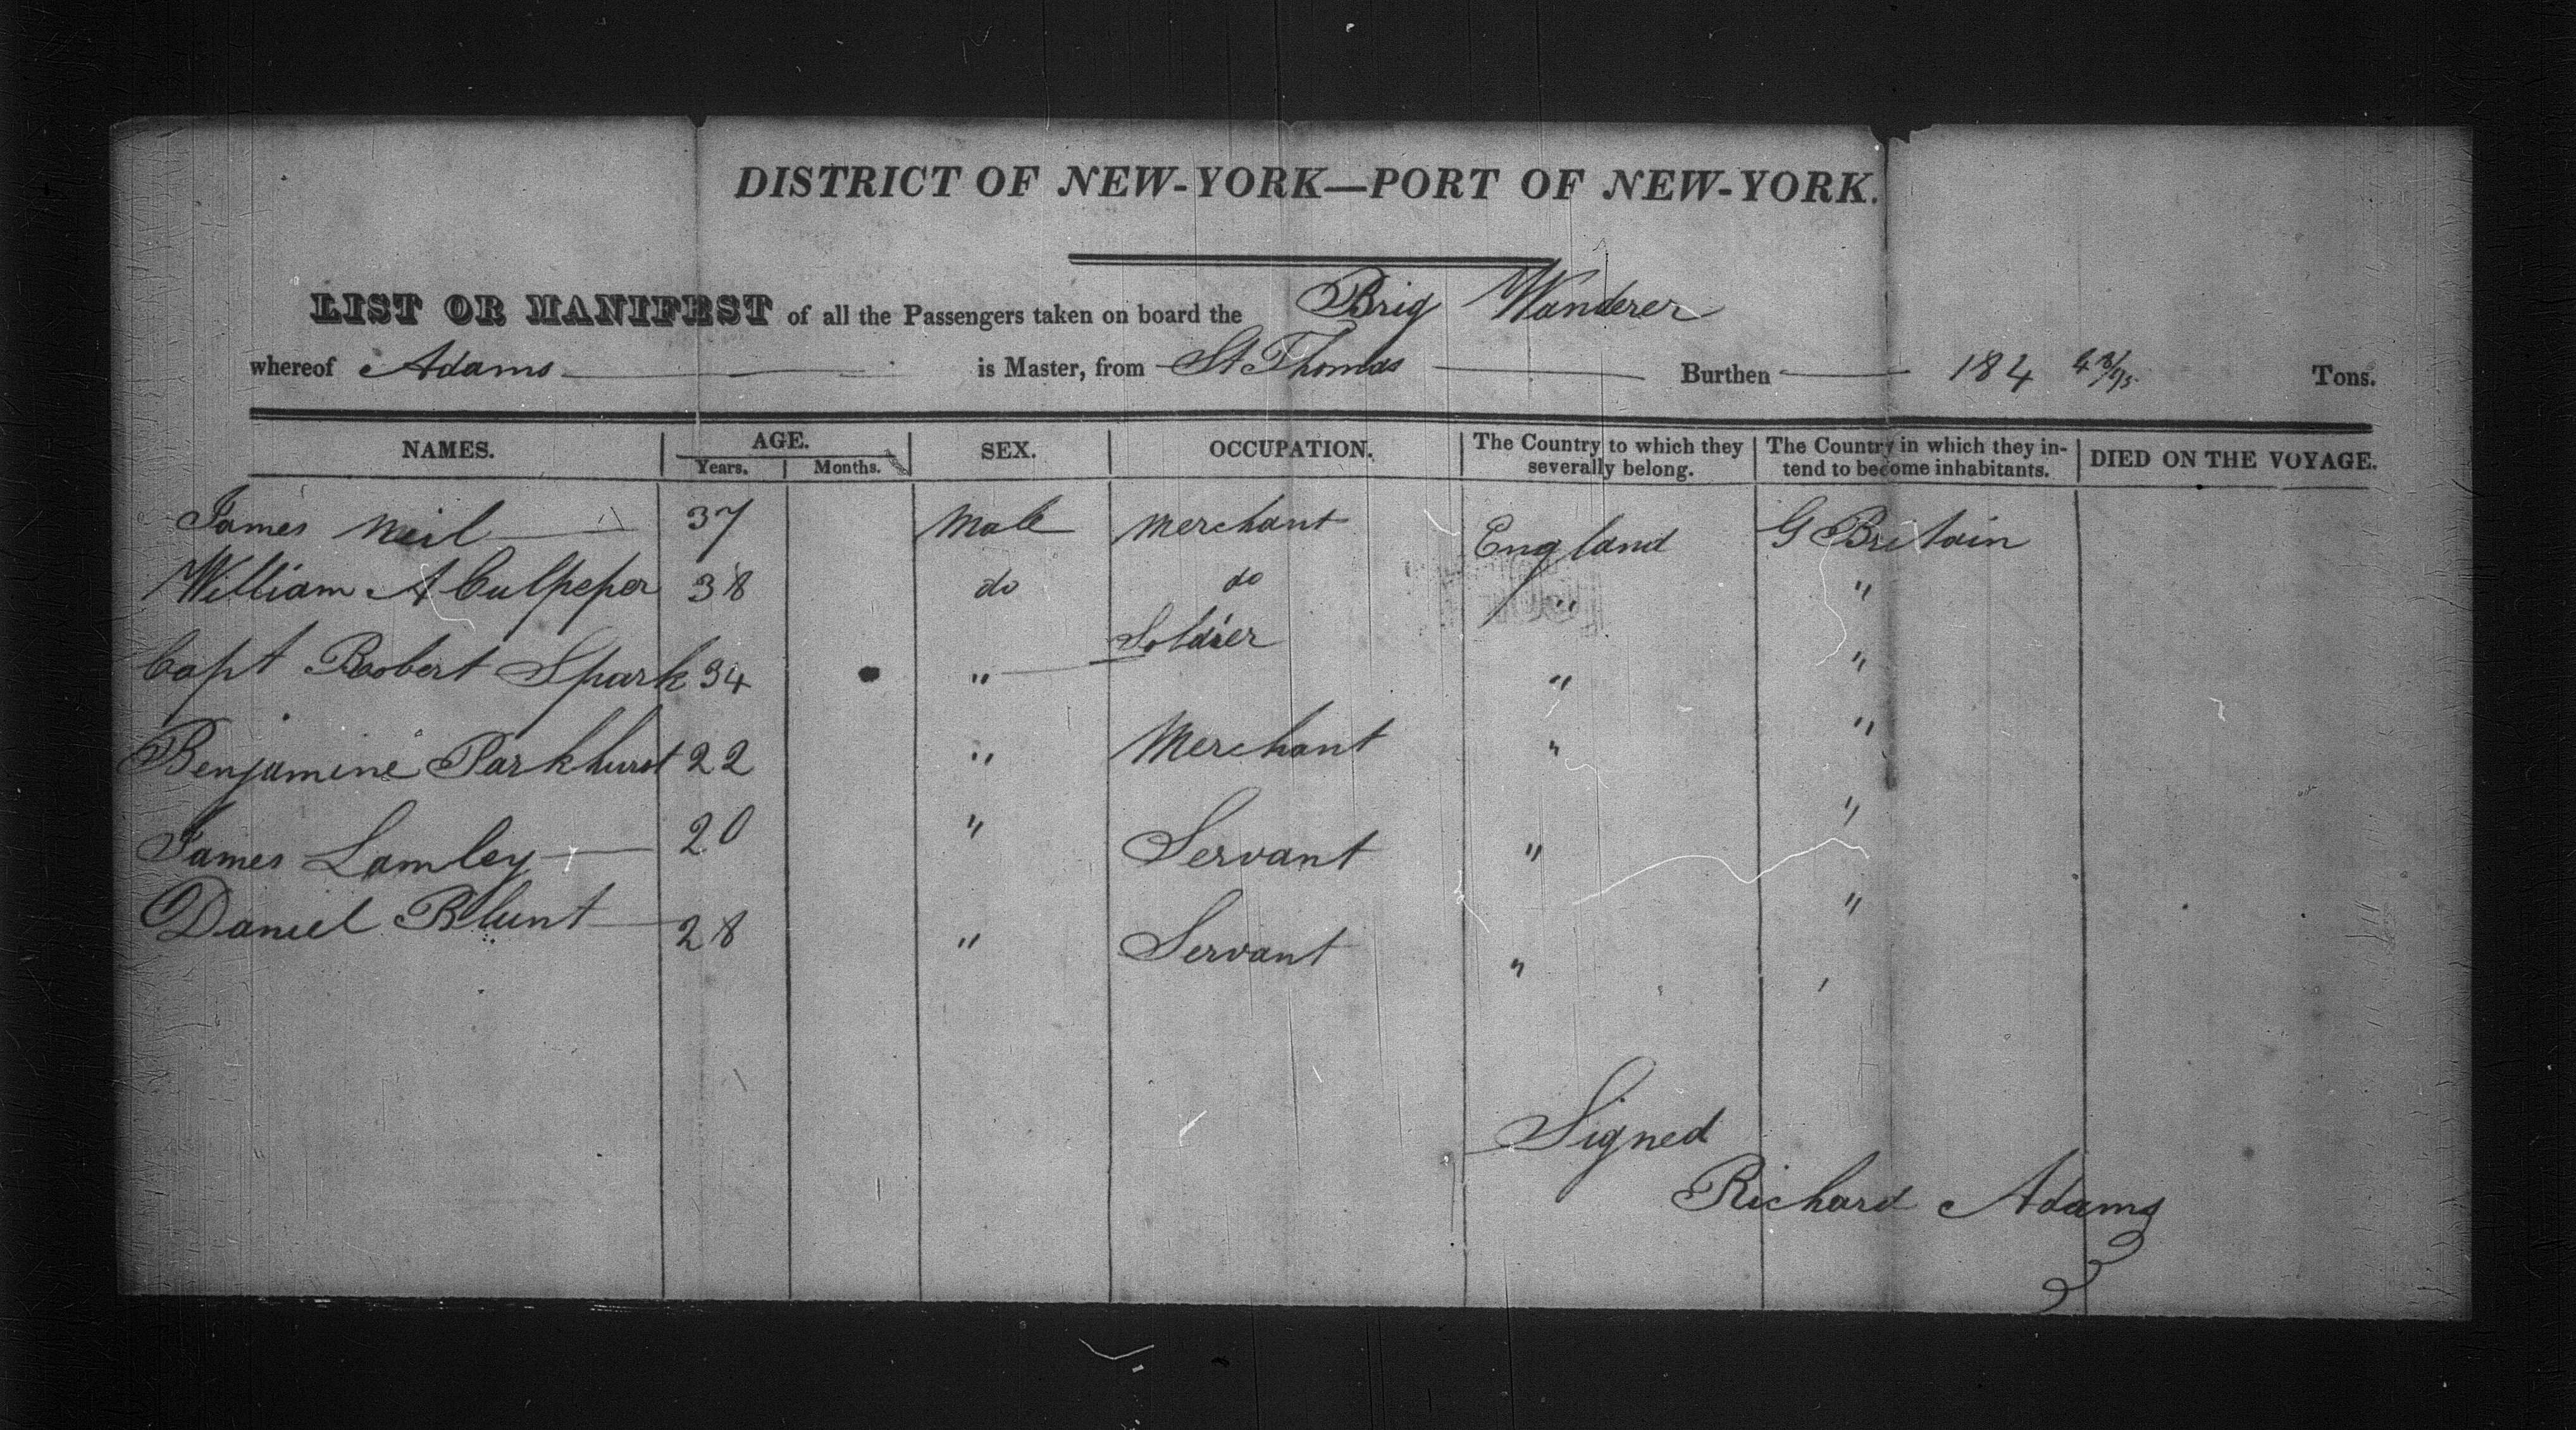 DISTRICT OF NEW-YORK—PORT OF NEW-YORK.
LIST OR MANIFEST of all the Passengers taken on board the Brig Wanderer
whereof Adams is Master, from St Thomas Burthen 184 48/95 Tons.
NAMES. AGE. Years. Months. SEX. OCCUPATION. The Country to which they severally belong. The Country in which they intend to become inhabitants. DIED ON THE VOYAGE.
James Neil 37 Male Merchant England G Britain
William A Culpeper 38 do do " "
Capt Robert Spark 34 " Soldier " "
Benjamine Parkhurst 22 " Merchant " "
James Lamley 20 " Servant " "
Daniel Blunt 28 " Servant " "
Signed
Richard Adams